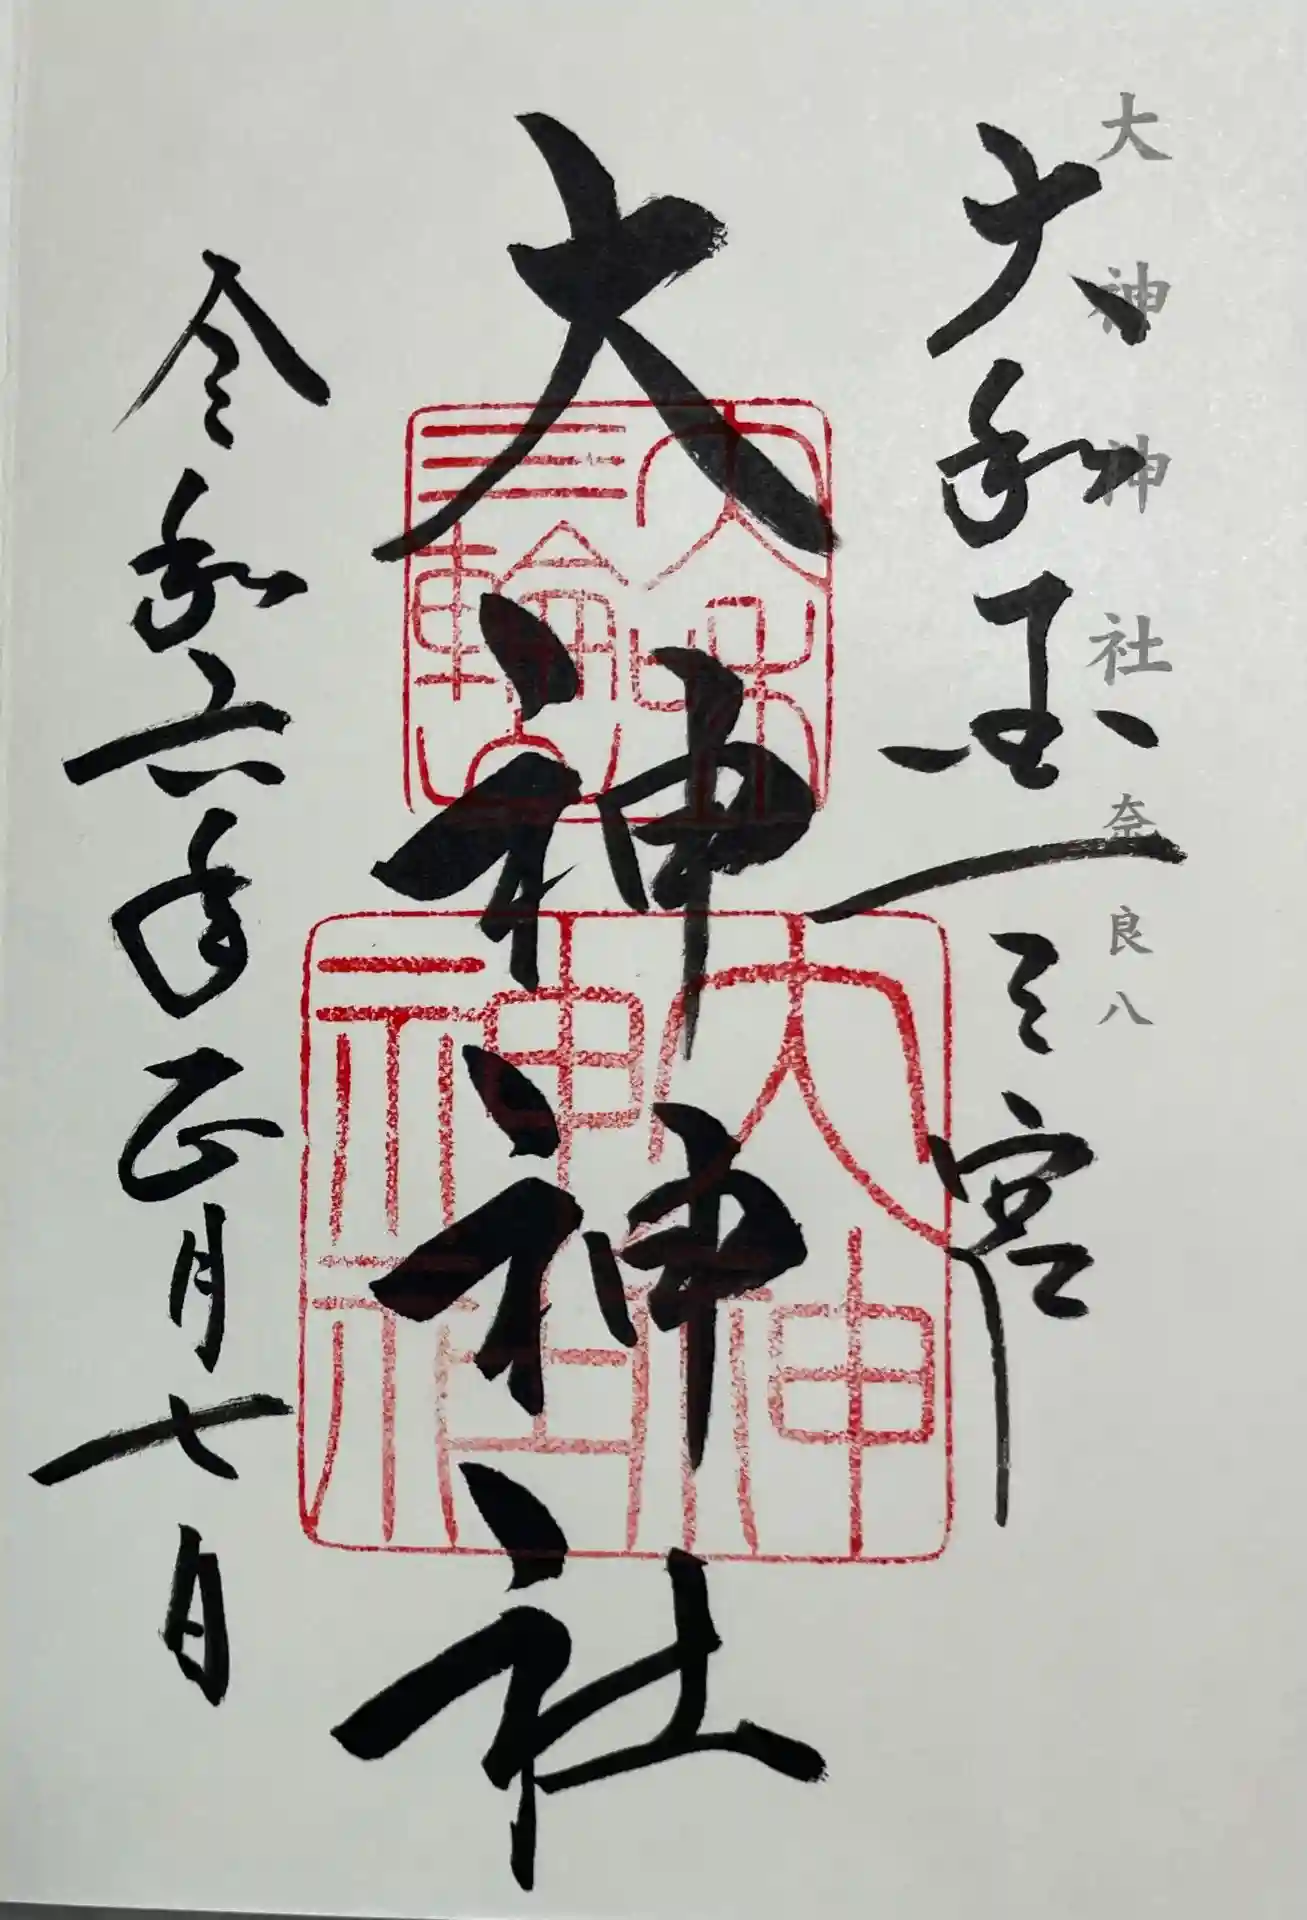 大神神社 奈良八
大和国一之宮
大神神社
令和六年正月七日
大神
神社